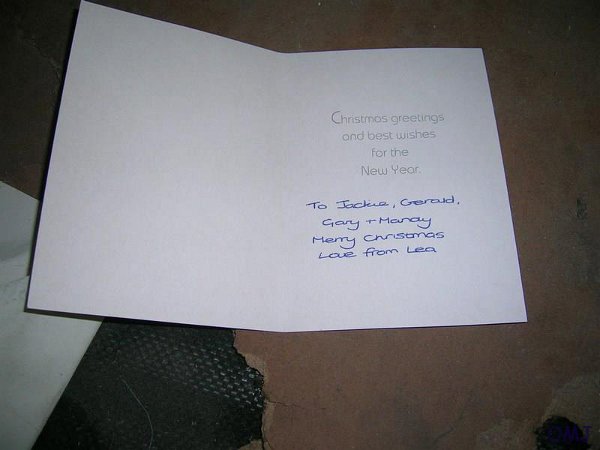 Christmas greetings
and best wishes
for the
New Year.
To Jackie, Gerald,
Gary + Mandy
Merry Christmas
Love from Lea